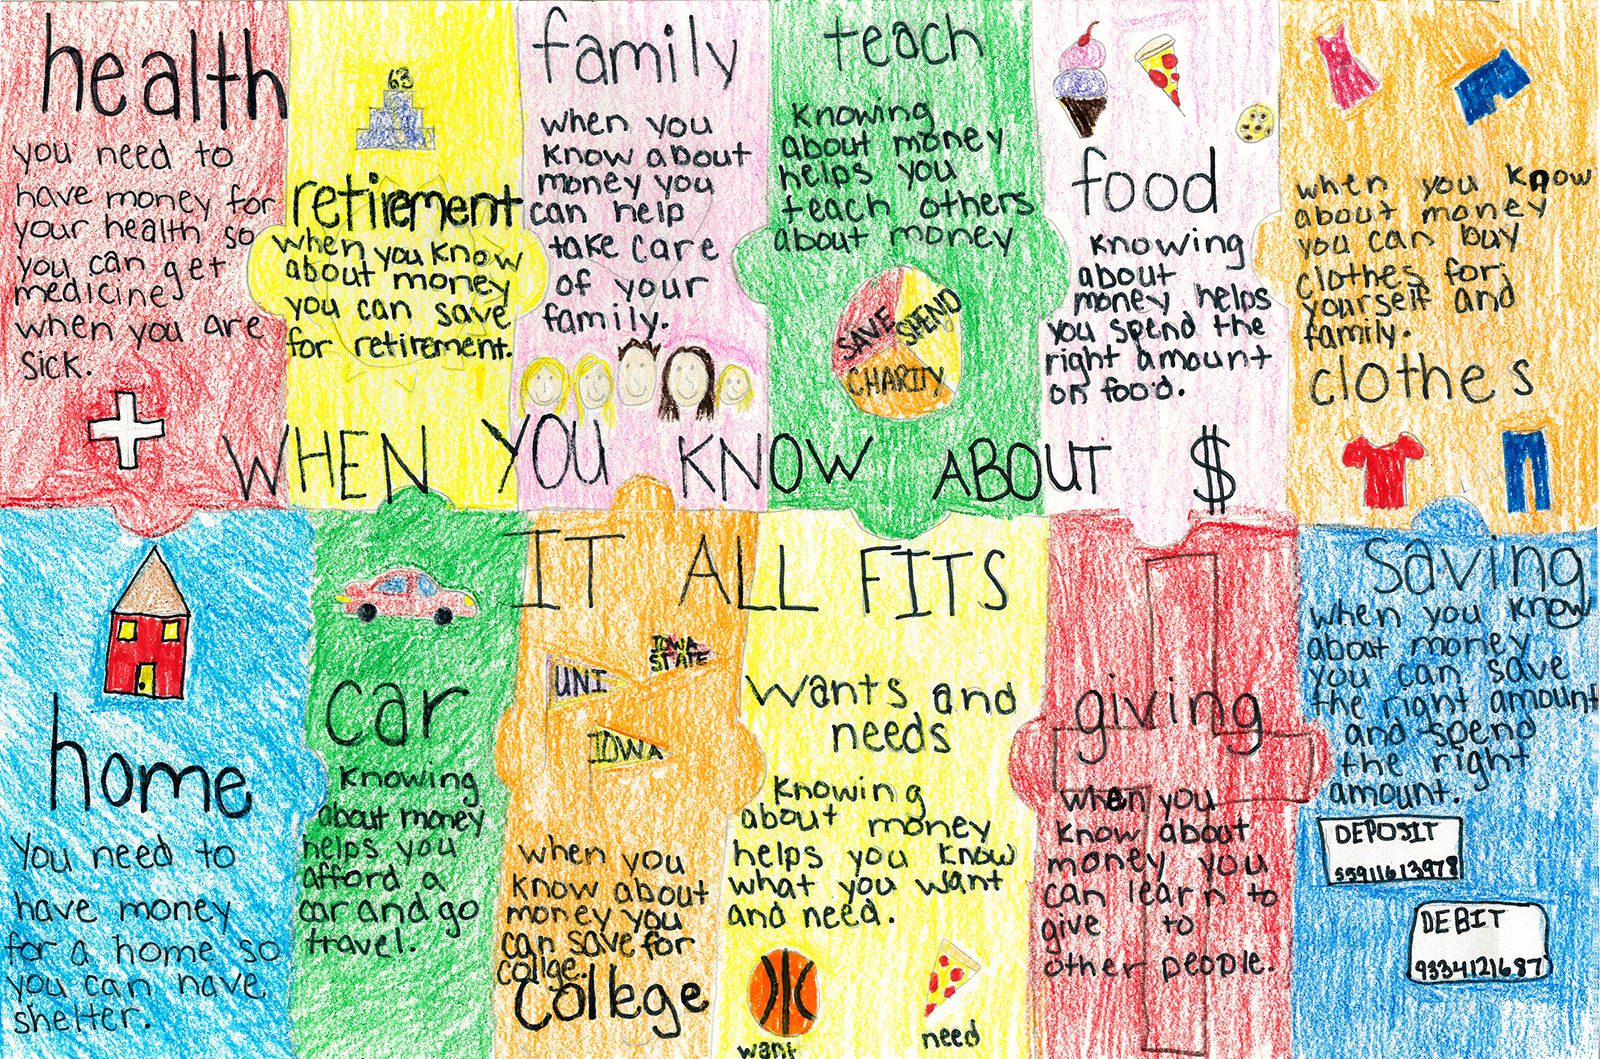 health
you need to
have money for
your health so
you can get
medicine
when you are
sick.
63
retirement
when you know
about money
you can save
for retirement.
family
when you
know about
money you
can help
take care
of your
family.
teach
knowing
about money
helps you
teach others
about money
SAVE
SPEND
CHARITY
food
knowing
about
money helps
you spend the
right amount
on food.
when you know
about money
you can buy
clothes for
yourself and
family.
clothes
WHEN YOU KNOW ABOUT $
IT ALL FITS
home
You need to
have money
for a home so
you can have
shelter.
car
knowing
about money
helps you
afford a
car and go
travel.
IOWA
STATE
UNI
IOWA
when you
know about
money you
can save for
collge.
College
wants and
needs
knowing
about money
helps you know
what you want
and need.
want
need
giving
when you
know about
money you
can learn to
give to
other people.
saving
when you know
about money
you can save
the right amount
and spend
the right
amount.
DEPOSIT
55911613978
DEBIT
9334121687